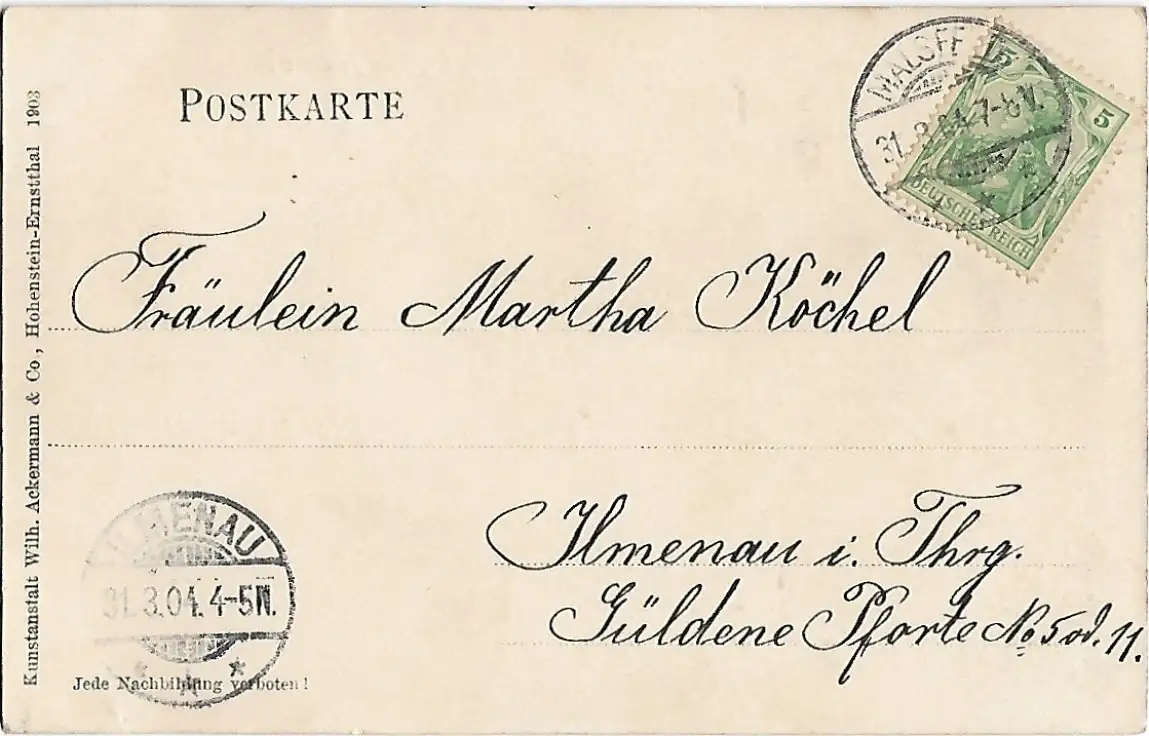 POSTKARTE
5
5
DEUTSCHES REICH
31.3.04.
Fräulein Martha Köchel
Ilmenau i. Thrg.
Güldene Pforte No 5 od. 11.
ILMENAU
31.3.04. 4-5N.
Jede Nachbildung verboten!
Kunstanstalt Wilh. Ackermann & Co., Hohenstein-Ernstthal 1903